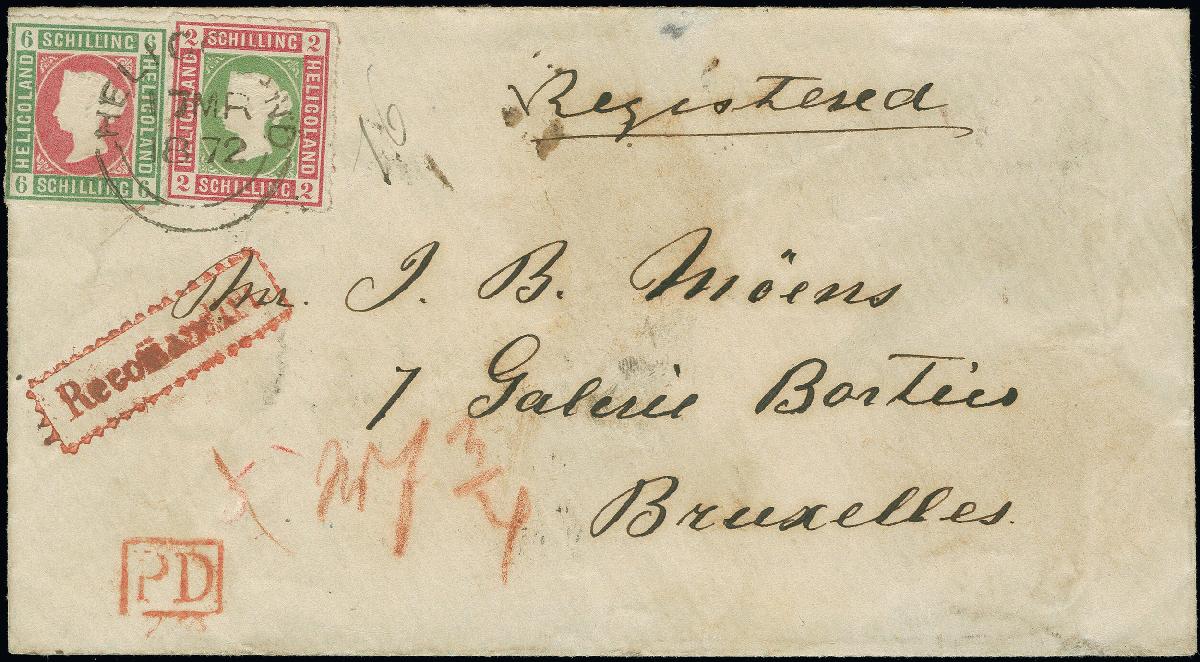 6 SCHILLING 6
HELIGOLAND
HELIGOLAND
6 SCHILLING 6
2 SCHILLING 2
HELIGOLAND
HELIGOLAND
2 SCHILLING 2
MR
72
Registered
Recomandirt
Mr. J. B. Möens
7 Galerie Bortier
Bruxelles
3/4
PD